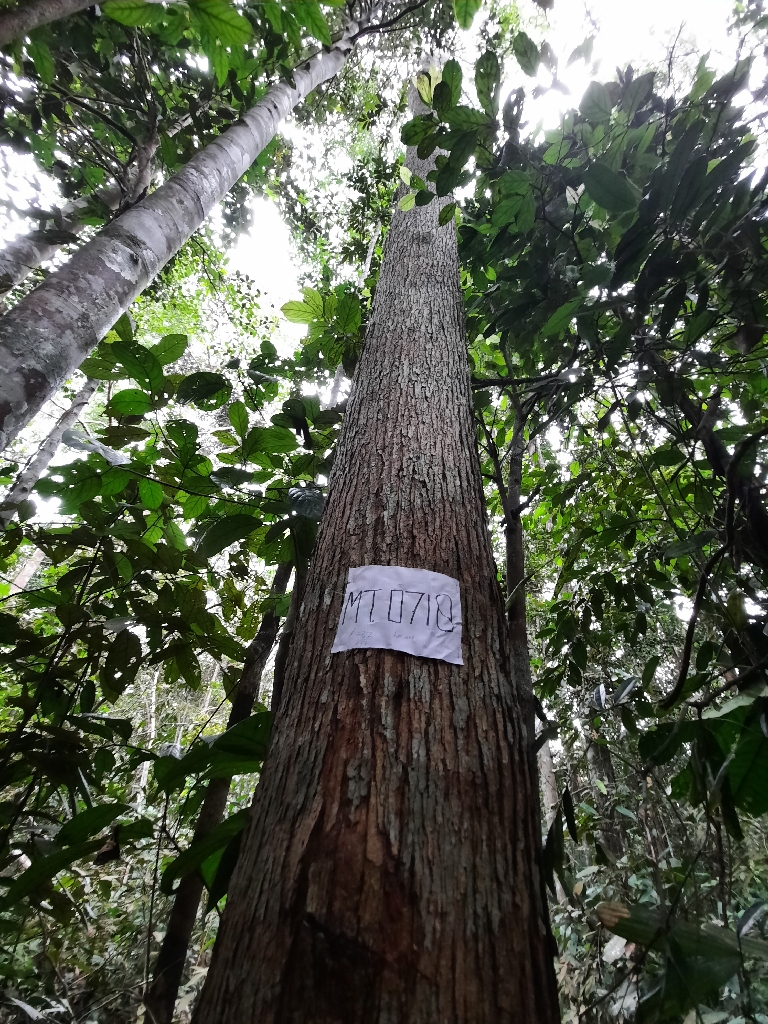 MT 0718